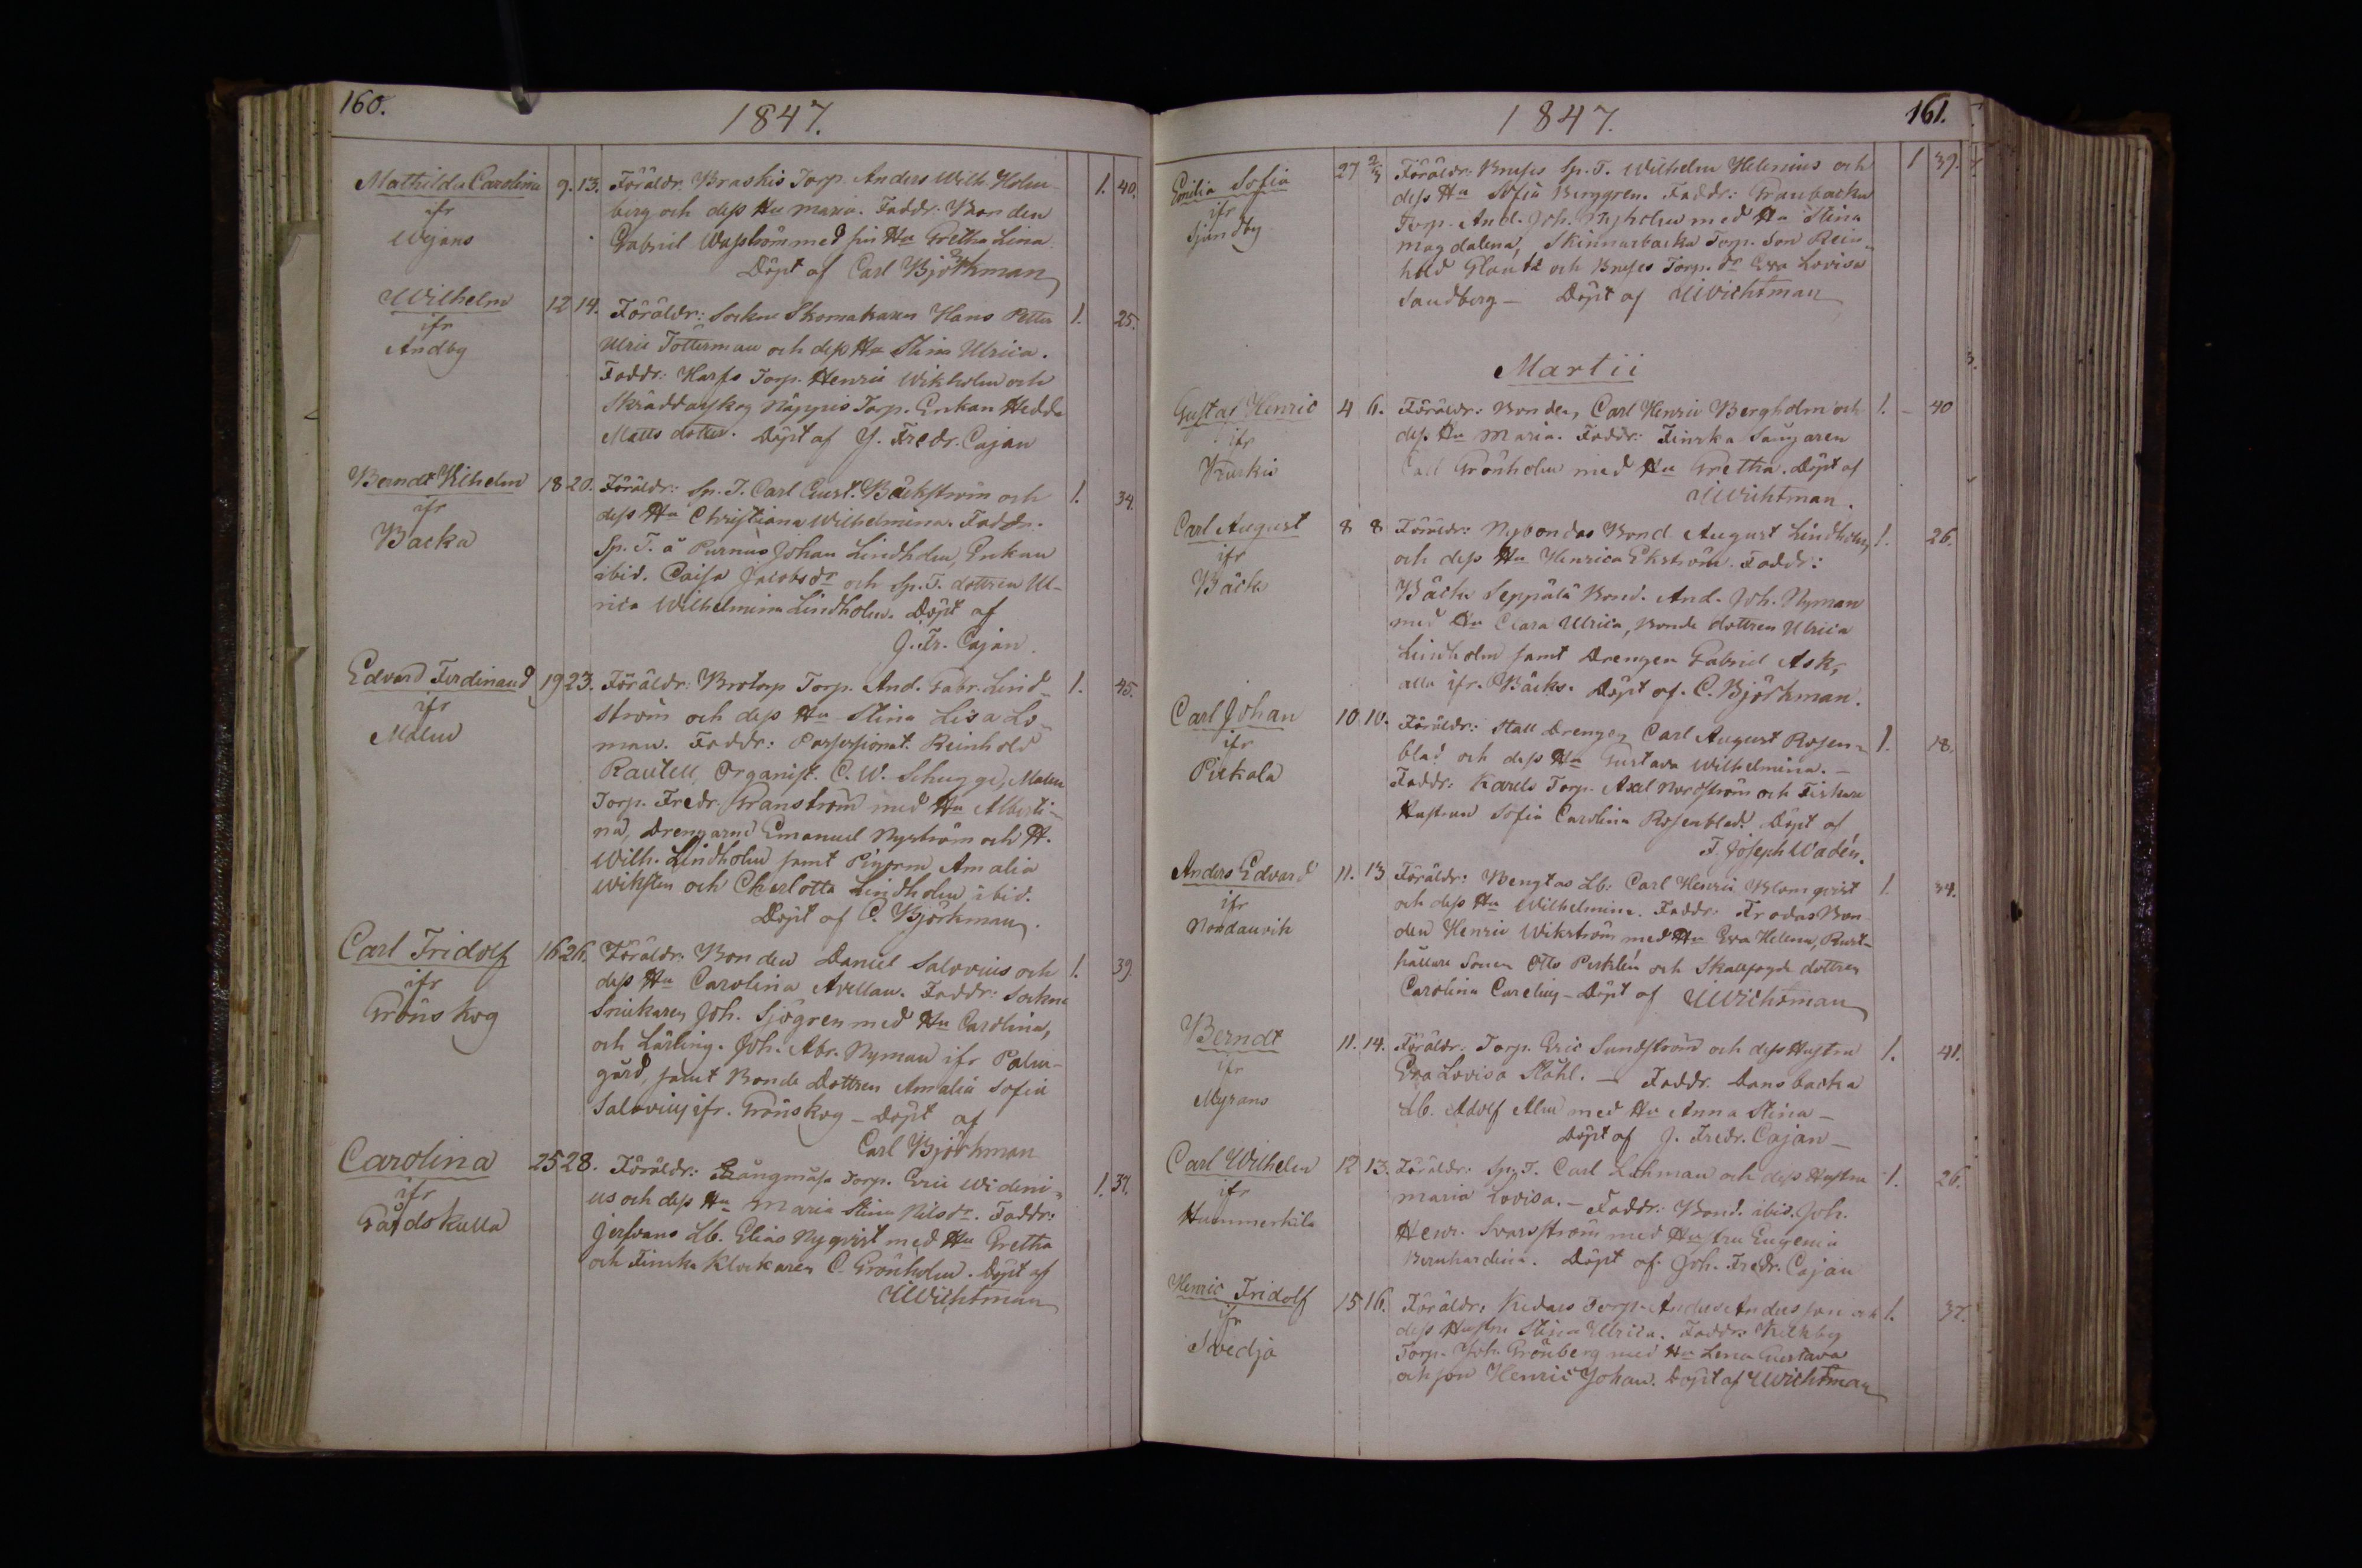 160.
1847.
Mathilda Carolina 9. 13. Föräldr. Braskis Torp. Anders Wilh. Holm- 1. 40.
ifr berg och dess Hu Maria. Faddr: Bonden
Wejans Gabriel Wasström med sin Hu Gretha Lina.
Döpt af Carl Björkman
Wilhelm 12 14. Föräldr: Sockne Skomakaren Hans Petter 1. 25.
ifr Ulric Totterman och dess Hu Stina Ulrica.
Andby Faddr: Torp. Henric Wikholm och
Skräddarskog Näppis Torp. Enkan Hedda
Matts dotter. Döpt af J. Fredr. Cajan
Berndt Wilhelm 18 20. Föräldr: Sp. T. Carl Gust. Bäckström och 1. 34.
ifr dess Hu Christiana Wilhelmina. Faddr.
Backa Sp. T. å Purnus Johan Lindholm, Enkan
ibid. Caisa Jacobsdr och Sp. T. dottren Ul-
rica Wilhelmina Lindholm. Döpt af
J. Fr. Cajan.
Edvard Ferdinand 19 23. Föräldr: Brotorp Torp. And. Gabr. Lind- 1. 45.
ifr ström och dess Hu Stina Lisa Lo-
Malm man. Faddr: Possessionat. Reinhold
Rautell, Organist. C. W. Schugge, Malm
Torp. Fredr. Granström med Hu Alberti-
na, Drengarne Emanuel Nyström och H.
Wilh. Lindholm samt Pigorna Amalia
Wiksten och Charlotta Lindholm ibid.
Döpt af C. Björkman.
Carl Fridolf 16 26. Föräldr: Bonden Daniel Salovius och 1. 39.
ifr dess Hu Carolina Avellan. Faddr: Sockne
Grönskog Snickaren Joh. Sjögren med Hu Carolina,
och Lärling. Joh. Abr. Nyman ifr Palm-
gård, samt Bonde Dottren Amalia Sofia
Salovius ifr. Grönskog – Döpt af
Carl Björkman
Carolina 25 28. Föräldr: Långmåsa Torp. Eric Wideni- 1. 37.
ifr us och dess Hu Maria Stina Nilsdr. Faddr:
Gårdskulla Jerfvans Lb. Elias Nyqvist med Hu Gretha
och Finska Klockaren C. Grönholm. Döpt af
Wichtman
1847.
161.
Emilia Sofia 27 2/3 Föräldr: Sp. T. Wilhelm Helenius och 1 39.
ifr dess Hu Sofia Berggren. Faddr: Graubacka
Sjundby Torp. And. Joh. Nyholm med Hu Stina
Magdalena, Skinnarbacka Torp. Son Rein-
hold Glantz och Torp. dr Eva Lovisa
Sandberg – Döpt af Wichtman
Martii
Gustaf Henric 4 6. Föräldr: Bonden Carl Henric Bergholm och 1. – 40
ifr dess Hu Maria. Faddr: Finska
Carl Grönholm med Hu Gretha. Döpt af
Wichtman.
Carl August 8 8 Föräldr: Nybondas Bond August Lindholm 1. 26.
ifr och dess Hu Henrica Ekström. Faddr:
Bäck Bäcks Seppälä Bond. And. Joh. Nyman
med Hu Clara Ulrica, Bonde dottren Ulrica
Lindholm samt Drengen Gabriel Ask,
alla ifr. Bäcks. Döpt af. C. Björkman.
Carl Johan 10 10. Föräldr: Stall Drengen Carl August Rosen- 1. 18.
ifr blad och dess Hu Gustava Wilhelmina. –
Pickala Faddr: Karels Torp. Axel Nordström och Fiskare
Hustrun Sofia Carolina Rosenblad. Döpt af
F. Joseph Wadén.
Anders Edvard 11. 13 Föräldr: Bengtas Lb: Carl Henric Blomqvist 1. 34.
ifr och dess Hu Wilhelmina. Faddr: Frodas Bon-
Nordanvik den Henric Wikström med Hu Eva Helena, Rust-
hållare Sonen Otto Perklén och Skallfogde dottren
Carolina Carelius – Döpt af Wichtman
Berndt 11. 14. Föräldr: Torp. Eric Sundström och dess Hustru 1. 41.
ifr Eva Lovisa Ståhl. – Faddr. Dansbacka
Myrans Lb. Adolf Alm med Hu Anna Stina –
Döpt af J. Fredr. Cajan –
Carl Wilhelm 12 13. Föräldr: Sp. T. Carl Lehman och dess Hustru 1. 26.
ifr Maria Lovisa. – Faddr: Bond. ibid. Joh.
Hummerkila Henr. Svarsström med Hustru Eugenia
Bernhardina. Döpt af Joh. Fredr. Cajan
Henric Fridolf 15 16. Föräldr: Torp. Anders Andersson och 1. 37.
ifr dess Hustru Stina Ulrica. Faddr: Kelkby
Svedja Torp. Joh. Grönberg med Hu Lena Gustava
och son Henric Johan. Döpt af Wichtman